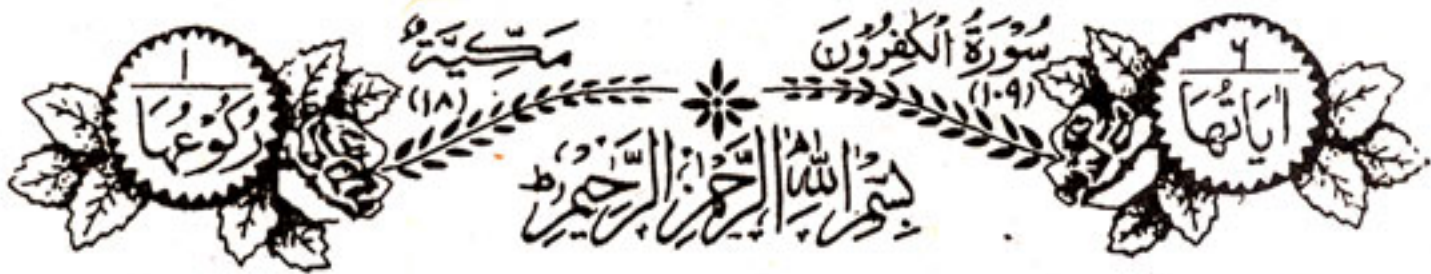 ٦
اٰيَاتُهَا
سُوْرَةُ الْكٰفِرُوْنَ
(١٠٩)
مَكِّيَّةٌ
(١٨)
١
رُكُوْعُهَا
بِسْمِ اللّٰهِ الرَّحْمٰنِ الرَّحِيْمِ ط